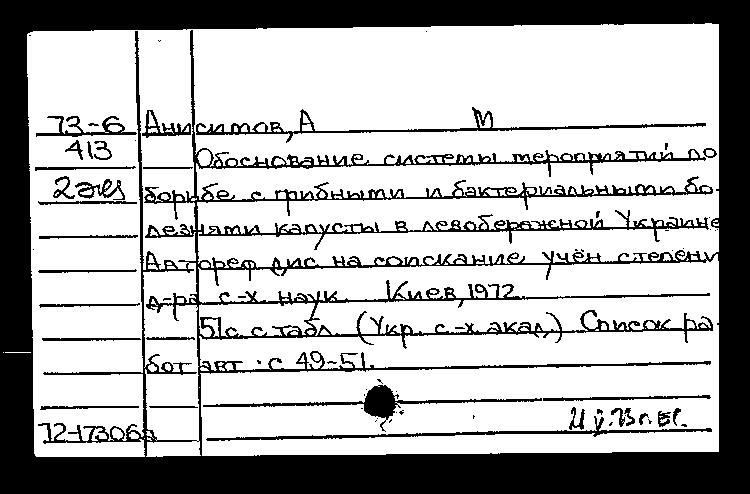 73-6 Анисимов, А М
413 Обоснование системы мероприятий по
2 экз борьбе с грибными и бактериальными бо-
лезнями капусты в левобережной Украине
Автореф дис на соискание учён степени
д-ра с-х наук Киев, 1972
51с с табл. (Укр. с-х акад.) Список ра-
бот авт : с 49-51.
72-17306а